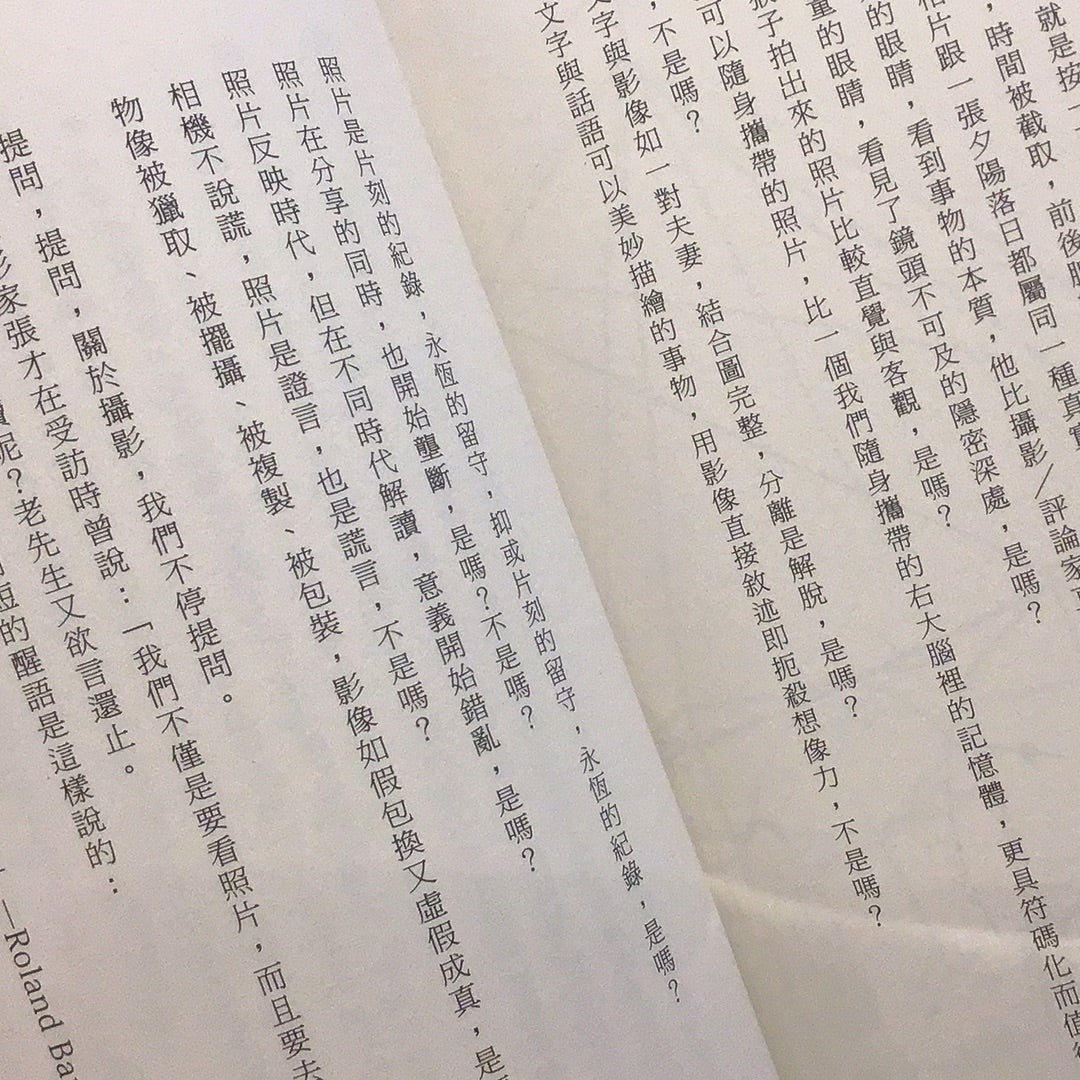 就是按一
，時間被截取，前後脈
相片跟一張夕陽落日都屬同一種真實
的眼睛，看到事物的本質，他比攝影／評論家更
童的眼睛，看見了鏡頭不可及的隱密深處，是嗎？
孩子拍出來的照片比較直覺與客觀，是嗎？
可以隨身攜帶的照片，比一個我們隨身攜帶的右大腦裡的記憶體，更具符碼化而值得
，不是嗎？
文字與影像如一對夫妻，結合圖完整，分離是解脫，是嗎？
文字與話語可以美妙描繪的事物，用影像直接敘述即扼殺想像力，不是嗎？
照片是片刻的紀錄，永恆的留守，抑或片刻的留守，永恆的紀錄，是嗎？
照片在分享的同時，也開始壟斷，是嗎？不是嗎？
照片反映時代，但在不同時代解讀，意義開始錯亂，是嗎？
相機不說謊，照片是證言，也是謊言，不是嗎？
物像被獵取、被擺攝、被複製、被包裝，影像如假包換又虛假成真，是
提問，提問，關於攝影，我們不停提問。
影家張才在受訪時曾說：「我們不僅是要看照片，而且要去
呢？老先生又欲言還止。
短的醒語是這樣說的：
—Roland Ba